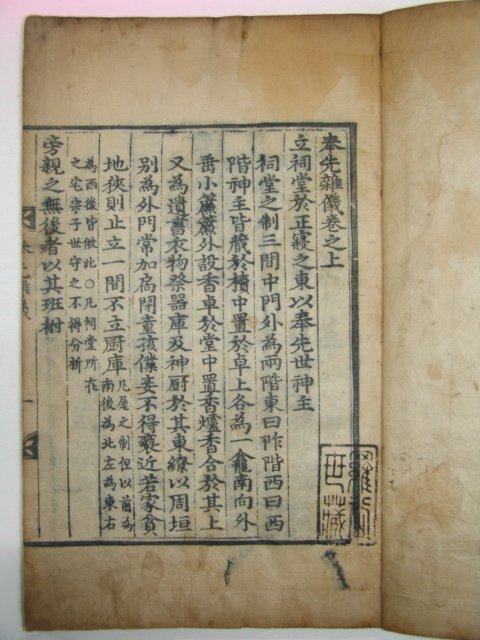 奉先雜儀卷之上
立祠堂於正寢之東以奉先世神主
祠堂之制三間中門外為兩階東曰阼階西曰西
階神主皆藏於櫝中置於卓上各為一龕南向外
垂小簾簾外設香卓於堂中置香爐香合於其上
又為遺書衣物祭器庫及神厨於其東繚以周垣
别為外門常加扃閉童孩僕妾不得褻近若家貧
地狹則止立一間不立厨庫凡屋之制但以前為
南後為北左為東右
為西後皆倣此○凡祠堂所在
之宅宗子世守之不得分析
旁親之無後者以其班祔
世藏